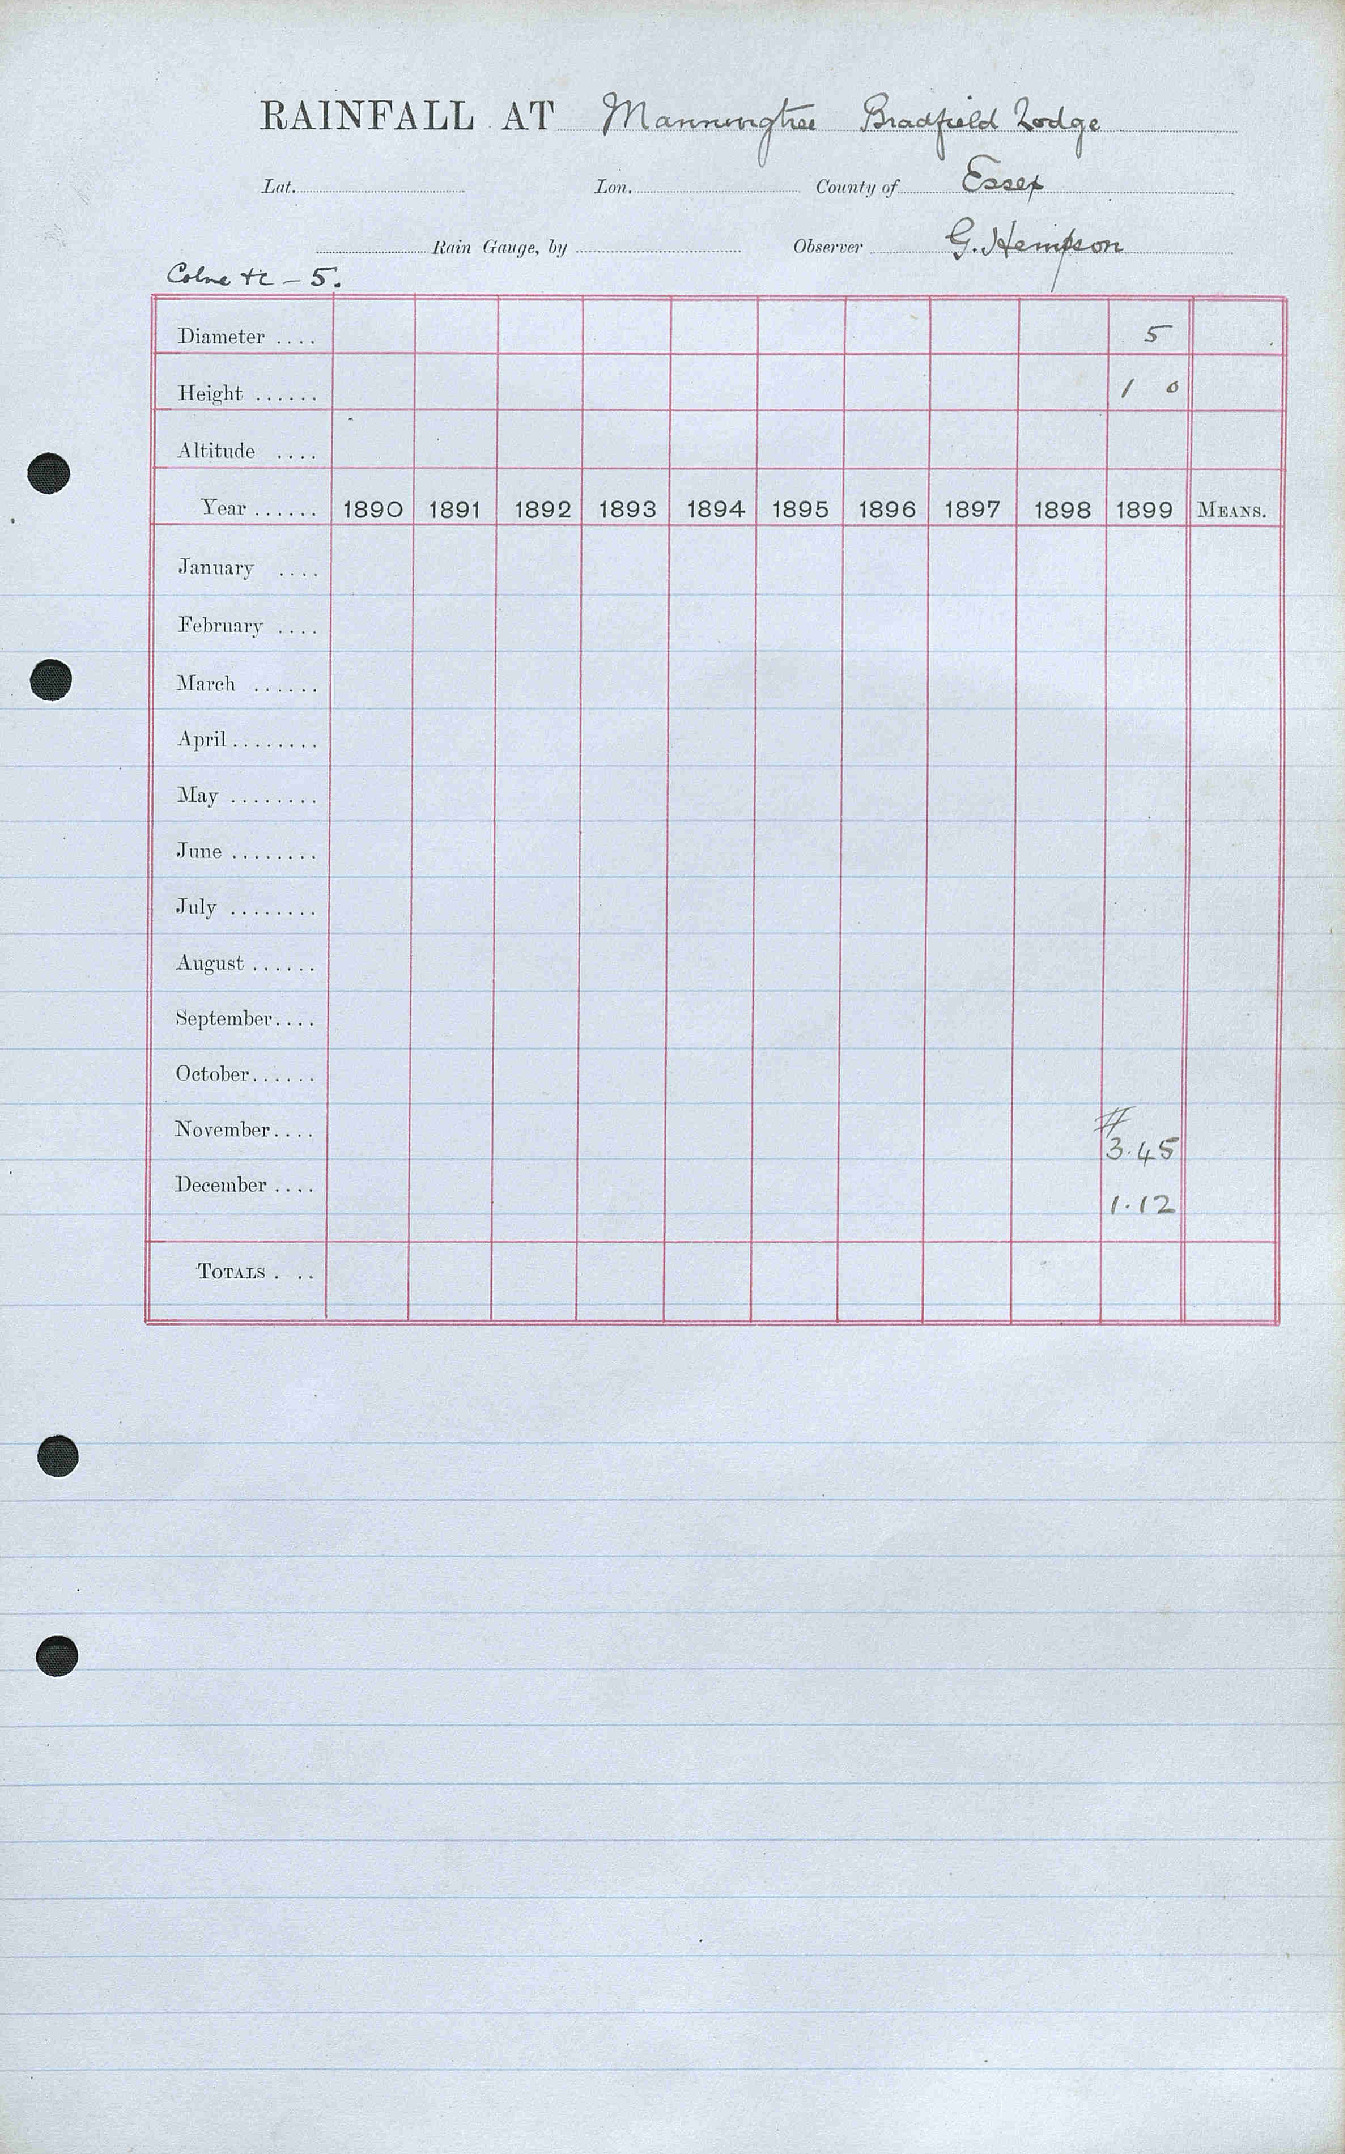 RAINFALL AT Manningtree Bradfield Lodge
Lat. Lon. County of Essex
Rain Gauge, by Observer G. Hempson
Colne &c - 5.
Diameter .... 5
Height ...... 1 0
Altitude ....
Year ...... 1890 1891 1892 1893 1894 1895 1896 1897 1898 1899 MEANS.
January ....
February ....
March ......
April ........
May ........
June ........
July ........
August ......
September ....
October ......
November .... # 3.45
December .... 1.12
TOTALS . ..